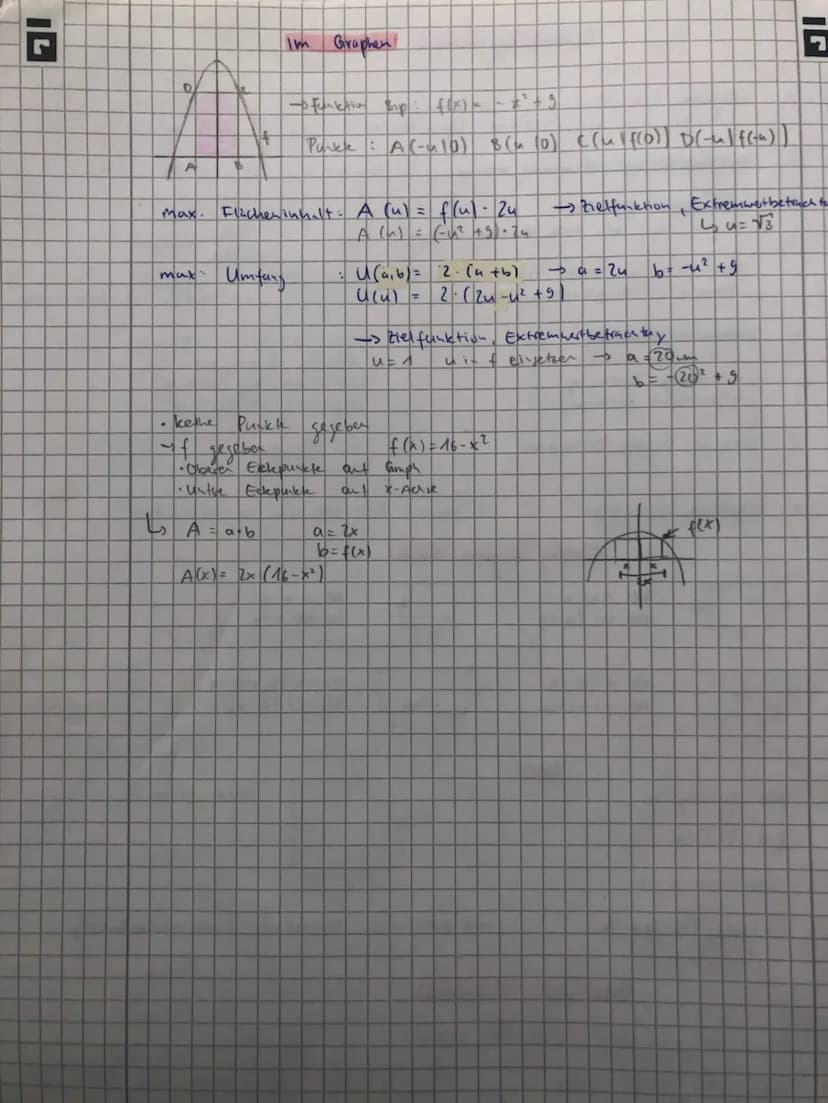 Im Graphen
D
→ Funktion Bsp: f(x) = -x²+9
f
Punkte : A(-u|0) B(u|0) C(u|f(0)) D(-u|f(-u))
A B
max. Flächeninhalt: A(u) = f(u) · 2u → Zielfunktion, Extremwertbetracht
A(u) = (-u² +9) · 2u ↳ u = √3
max. Umfang : U(a,b) = 2 · (a+b) → a = 2u b = -u² + 9
U(u) = 2 · (2u - u² + 9)
→ Zielfunktion, Extremwertbetrachtung
u = 1 u in f einsetzen → a =
b = + 9
· keine Punkte gegeben
→ f gegeben f(x) = 16 - x²
· Oberen Eckpunkte auf Graph
· Untere Eckpunkte auf x-Achse
↳ A = a·b a = 2x f(x)
b = f(x)
A(x) = 2x (16 - x²) x x
2x